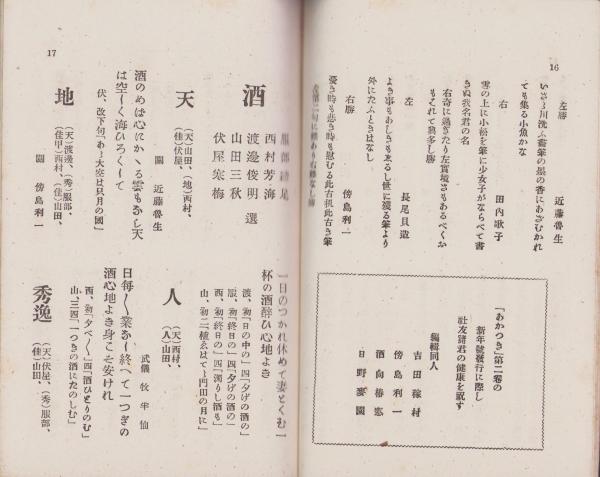 16
左勝
近藤魯生
いさゝ川洗ふ蓄筆の墨の香にあざむかれ
ても集る小魚かな
右
田内歌子
雪の上に小松を筆に少女子がならべて書
きぬ我名君の名
右奇に過ぎたり左實境さもあるべくお
もはれて興多し勝
左
長尾貝造
よき事もあしきもゑるし世に殘る筆より
外にたふときはなし
右勝
傍島利一
憂き時も悲き時も慰むる此古机此古き筆
「あかつき」第二卷の
新年號發行に際し
社友諸君の健康を祝す
編輯同人
吉田稼村
傍島利一
酒向椿窓
日野麥園
17
酒
服部綾足
西村芳海
渡邊俊明 選
山田三秋
伏屋寒梅
天
(天)山田、(地)西村、
(佳)伏屋、
關 近藤魯生
酒のめば心にかゝる雲もなし天
は空しく海ひろくして
伏、改下句「あゝ大空は只月の國」
地
(天)渡邊、(秀)服部、
(佳甲)西村、(佳)山田、
關 傍島利一
一日のつかれ休めて妻とくむ一
杯の酒醉ひ心地よき
渡、初「日の中の」四「夕げの酒の」
服、初「終日の」四「夕げの酒の」
西、初「終日の」四「濁りし酒も」
山、初二「種ゑはてし門田の月に」
人
(天)西村、
(人)山田、
武儀 牧牟仙
日每〳〵業なし終へて一つぎの
酒心地よき身こそ安けれ
西、初「夕べ〳〵」四「酒ひとりのむ」
山、三四「一つきの酒にたのしむ」
秀逸
(天)伏屋、(秀)服部、
(佳)山田、